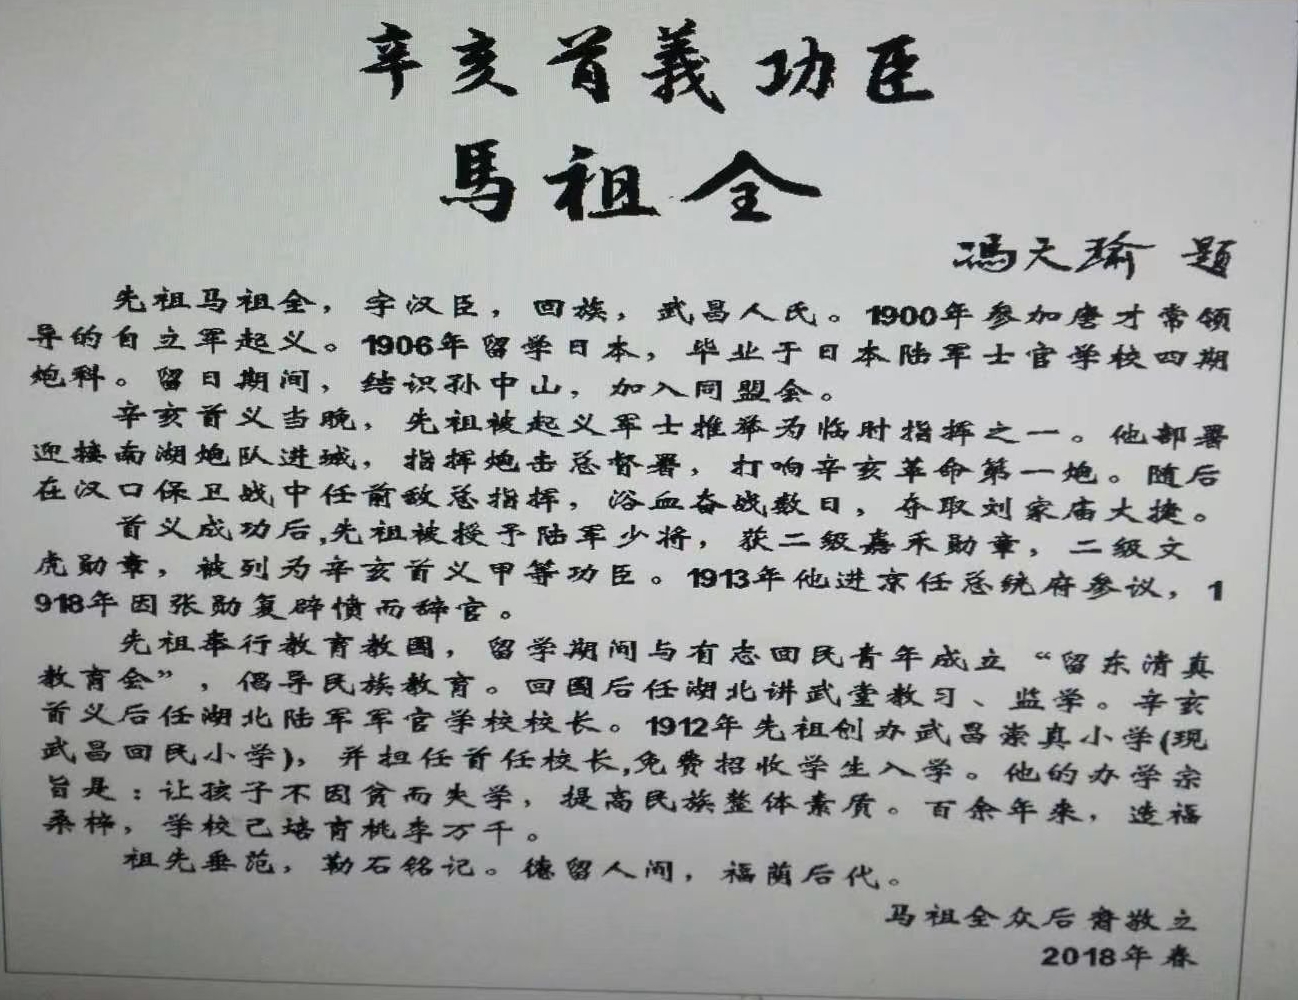 辛亥首義功臣
馬祖全
馮天瑜 题
先祖马祖全，字汉臣，回族，武昌人氏。1900年参加唐才常领
导的自立军起义。1906年留学日本，毕业于日本陆军士官学校四期
炮科。留日期间，结识孙中山，加入同盟会。
辛亥首义当晚，先祖被起义军士推举为临时指挥之一。他部署
迎接南湖炮队进城，指挥炮击总督署，打响辛亥革命第一炮。随后
在汉口保卫战中任前敌总指挥，浴血奋战数日，夺取刘家庙大捷。
首义成功后,先祖被授予陆军少将，获二级嘉禾勋章，二级文
虎勋章，被列为辛亥首义甲等功臣。1913年他进京任总统府参议，1
918年因张勋复辟愤而辞官。
先祖奉行教育救国，留学期间与有志回民青年成立“留东清真
教育会”，倡导民族教育。回国后任湖北讲武堂教习、监学。辛亥
首义后任湖北陆军军官学校校长。1912年先祖创办武昌崇真小学(现
武昌回民小学)，并担任首任校长,免费招收学生入学。他的办学宗
旨是：让孩子不因贫而失学，提高民族整体素质。百余年来，造福
桑梓，学校已培育桃李万千。
祖先垂范，勒石铭记。德留人间，福荫后代。
马祖全众后裔敬立
2018年春